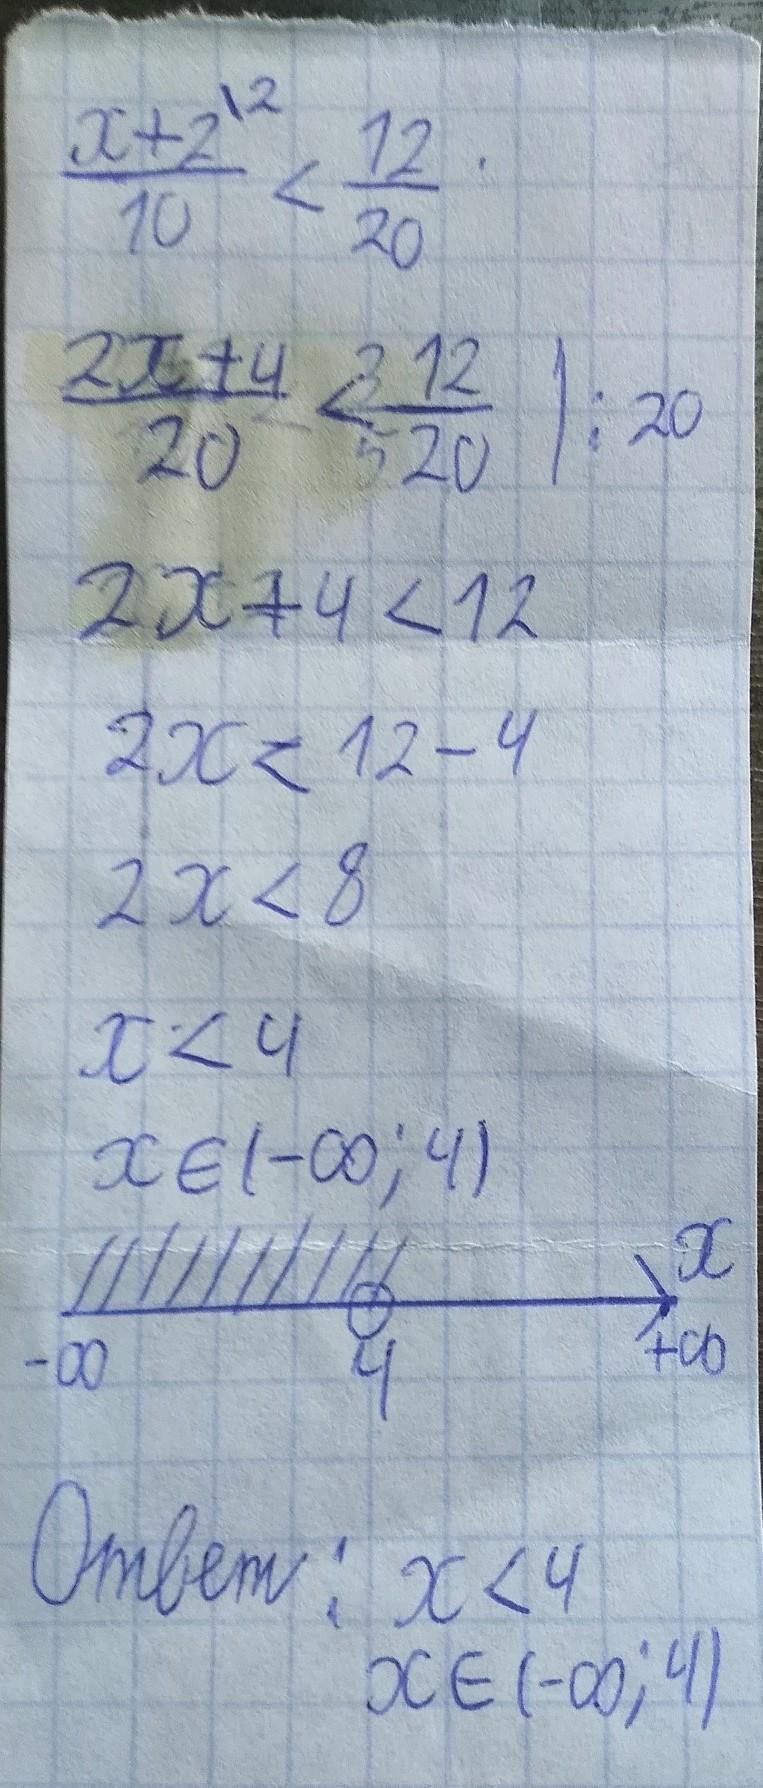 x+2\2 / 10 < 12 / 20 .
2x+4 / 20 < 12 / 20 | : 20
2x+4<12
2x < 12-4
2x<8
x<4
x∈(-∞;4)
x
-∞ 4 +∞
Ответ: x<4
x∈(-∞;4)